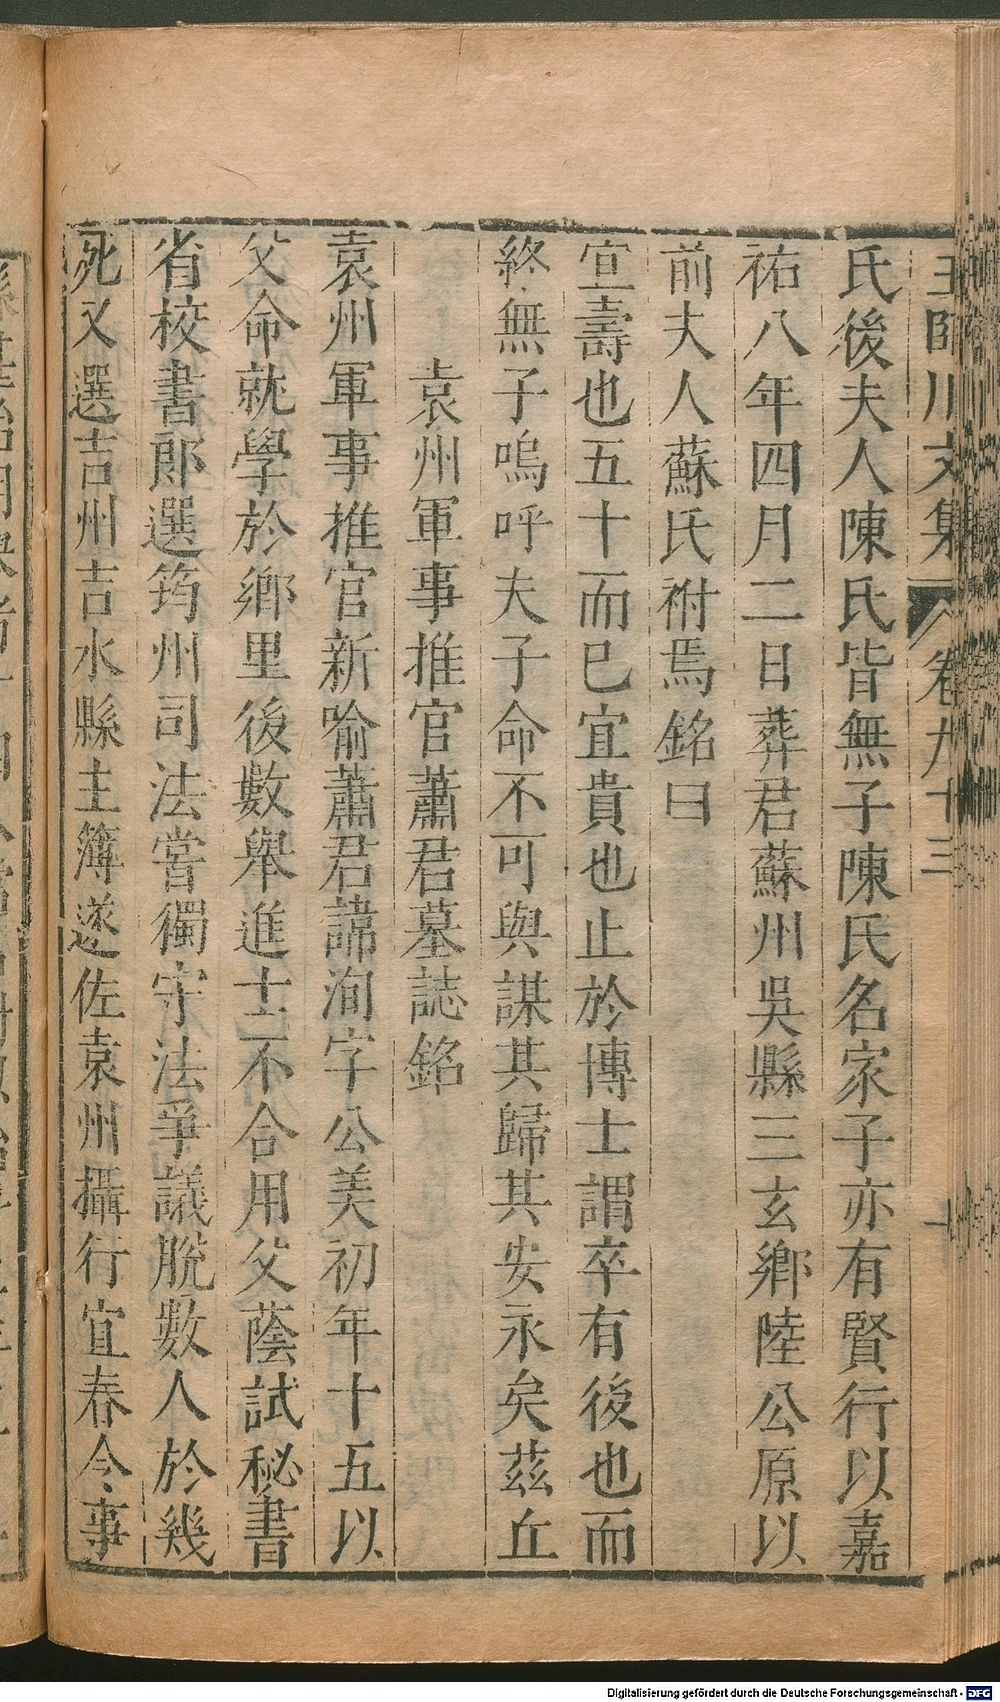 王臨川文集 卷九十三 十
氏後夫人陳氏皆無子陳氏名家子亦有賢行以嘉
祐八年四月二日葬君蘇州吳縣三玄鄉陸公原以
前夫人蘇氏祔焉銘曰
宣壽也五十而已宜貴也止於博士謂卒有後也而
終無子嗚呼夫子命不可與謀其歸其安永矣茲丘
袁州軍事推官蕭君墓誌銘
袁州軍事推官新喻蕭君諱洵字公美初年十五以
父命就學於鄉里後數舉進士不合用父蔭試秘書
省校書郎選筠州司法嘗獨守法爭議脫數人於幾
死又選吉州吉水縣主簿遂佐袁州攝行宜春令事
Digitalisierung gefördert durch die Deutsche Forschungsgemeinschaft - DFG